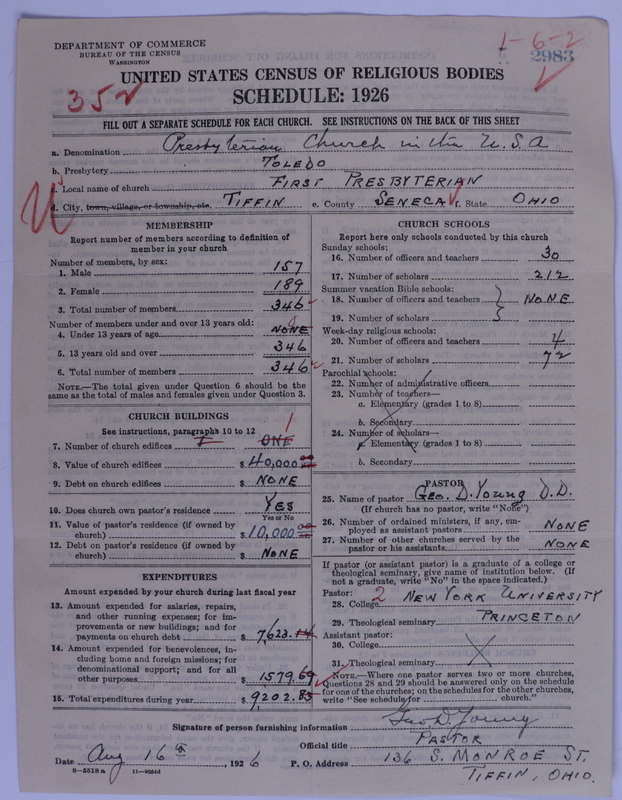 DEPARTMENT OF COMMERCE
BUREAU OF THE CENSUS
WASHINGTON
1-6-2
2983
UNITED STATES CENSUS OF RELIGIOUS BODIES
352
SCHEDULE: 1926
FILL OUT A SEPARATE SCHEDULE FOR EACH CHURCH. SEE INSTRUCTIONS ON THE BACK OF THIS SHEET
a. Denomination Presbyterian Church in the U.S.A
b. Presbytery TOLEDO
c. Local name of church FIRST PRESBYTERIAN
d. City, town, village, or township, etc. TIFFIN e. County SENECA f. State OHIO
MEMBERSHIP
Report number of members according to definition of
member in your church
Number of members, by sex:
1. Male 157
2. Female 189
3. Total number of members 346
Number of members under and over 13 years old:
4. Under 13 years of age NONE
5. 13 years old and over 346
6. Total number of members 346
NOTE.—The total given under Question 6 should be the
same as the total of males and females given under Question 3.
CHURCH BUILDINGS
See instructions, paragraphs 10 to 12
7. Number of church edifices ONE 1
8. Value of church edifices $ 40,000.00
9. Debt on church edifices $ NONE
10. Does church own pastor's residence? YES
Yes or No
11. Value of pastor's residence (if owned by
church) $ 10,000.00
12. Debt on pastor's residence (if owned by
church) $ NONE
EXPENDITURES
Amount expended by your church during last fiscal year
13. Amount expended for salaries, repairs,
and other running expenses; for im-
provements or new buildings; and for
payments on church debt $ 7,623.14
14. Amount expended for benevolences, in-
cluding home and foreign missions; for
denominational support; and for all
other purposes $ 1579.69
15. Total expenditures during year $ 9202.83
CHURCH SCHOOLS
Report here only schools conducted by this church
Sunday schools:
16. Number of officers and teachers 30
17. Number of scholars 212
Summer vacation Bible schools:
18. Number of officers and teachers NONE
19. Number of scholars
Week-day religious schools:
20. Number of officers and teachers 4
21. Number of scholars 72
Parochial schools:
22. Number of administrative officers
23. Number of teachers—
a. Elementary (grades 1 to 8)
b. Secondary
24. Number of scholars—
a. Elementary (grades 1 to 8)
b. Secondary
PASTOR
25. Name of pastor Geo. D. Young D.D.
(If church has no pastor, write "None")
26. Number of ordained ministers, if any, em-
ployed as assistant pastors NONE
27. Number of other churches served by the
pastor or his assistants NONE
If pastor (or assistant pastor) is a graduate of a college or
theological seminary, give name of institution below. (If
not a graduate, write "No" in the space indicated.)
Pastor: 2
28. College NEW YORK UNIVERSITY
29. Theological seminary PRINCETON
Assistant pastor:
30. College
31. Theological seminary
NOTE.—Where one pastor serves two or more churches,
Questions 28 and 29 should be answered only on the schedule
for one of the churches; on the schedules for the other churches,
write "See schedule for church."
Signature of person furnishing information Geo. D. Young
Official title PASTOR
Date Aug 16th, 1926 P. O. Address 136 S. MONROE ST.
8—5518 a
TIFFIN, OHIO.